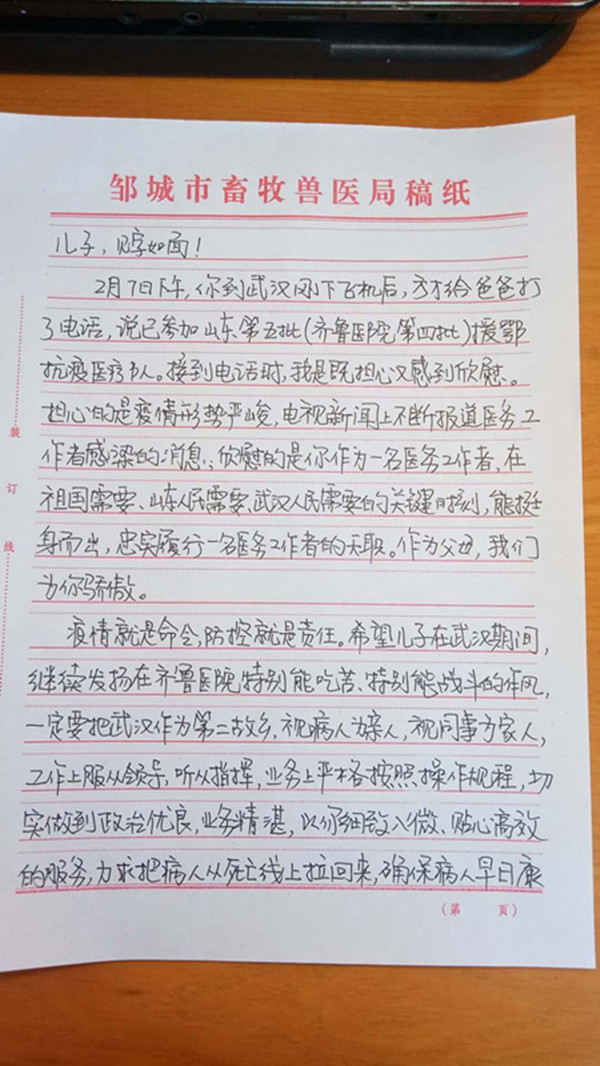 邹城市畜牧兽医局稿纸
儿子,见字如面!
2月7日下午,你到武汉刚下飞机后,才给爸爸打
了电话,说已参加山东第五批(齐鲁医院第四批)援鄂
抗疫医疗队。接到电话时,我是既担心又感到欣慰。
担心的是疫情形势严峻,电视新闻上不断报道医务工
作者感染的消息;欣慰的是你作为一名医务工作者,在
祖国需要、山东人民需要、武汉人民需要的关键时刻,能挺
身而出,忠实履行一名医务工作者的天职。作为父母,我们
为你骄傲。
疫情就是命令,防控就是责任。希望儿子在武汉期间,
继续发扬在齐鲁医院特别能吃苦、特别能战斗的作风,
一定要把武汉作为第二故乡,视病人为亲人,视同事为家人,
工作上服从领导,听从指挥,业务上严格按照操作规程,切
实做到政治优良,业务精湛,以你细致入微、贴心高效
的服务,力求把病人从死亡线上拉回来,确保病人早日康
(第 页)
装
订
线